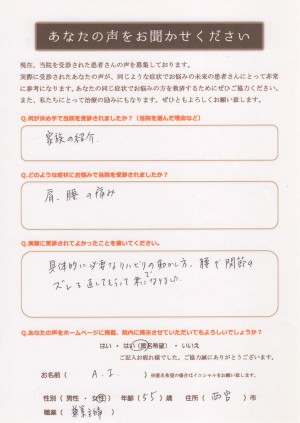 あなたの声をお聞かせください
現在、当院を受診された患者さんの声を募集しております。
実際に受診されたあなたの声が、同じような症状でお悩みの未来の患者さんにとって非常
に参考になります。あなたの同じ症状でお悩みの方を救済するためにぜひご協力ください。
また、私たちにとって治療の励みにもなります。ぜひともよろしくお願い致します。
Q.何が決め手で当院を受診されましたか？（当院を選んだ理由など）
家族の紹介.
Q.どのような症状にお悩みで当院を受診されましたか？
肩、腰の痛み
Q.実際に受診されてよかったことを書いてください。
具体的に必要なリハビリの動かし方、腰や関節の
ズレも直してもらって楽になりました。
Q.あなたの声をホームページに掲載、院内に掲示させていただいてもよろしいでしょうか？
はい ・ はい（匿名希望） ・ いいえ
ご記入お疲れ様でした。ご協力誠にありがとうございます。
お名前（ A. I. ）※匿名希望の場合はイニシャルをお願い致します。
性別（ 男性 ・ 女性 ） 年齢（ 55 ）歳 住所（ 西宮 ）市
職業（ 兼業主婦 ）